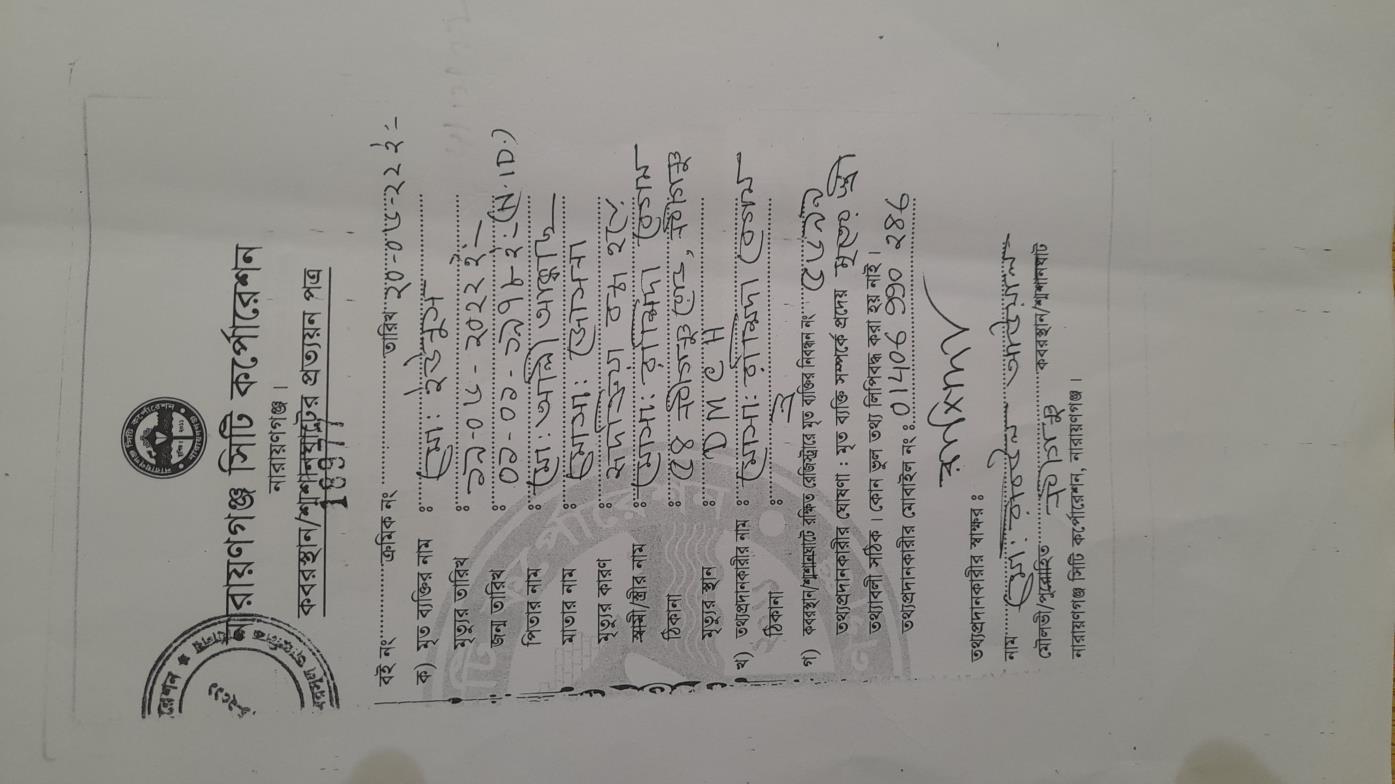 নারায়ণগঞ্জ সিটি কর্পোরেশন
নারায়ণগঞ্জ ।
কবরস্থান/শ্মশানঘাটের প্রত্যয়ন পত্র
বই নং............ক্রমিক নং ............তারিখ ২০-০৮-২২ ইং-
ক) মৃত ব্যক্তির নাম ঃ মোঃ ইউনুস
মৃত্যুর তারিখ ঃ ১৯-০৮-২০২২ ইং
জন্ম তারিখ ঃ ০১-০১-১৯৭৮ ইং (N.ID.)
পিতার নাম ঃ মোঃ আলী
মাতার নাম ঃ মোসাঃ জোসনা
মৃত্যুর কারণ ঃ
স্বামী/স্ত্রীর নাম ঃ মোসাঃ রাশিদা বেগম
ঠিকানা ঃ
মৃত্যুর স্থান ঃ D M C H
খ) তথ্যপ্রদানকারীর নাম ঃ মোসাঃ রাশিদা বেগম
ঠিকানা ঃ ঐ
গ) কবরস্থান/শ্মশানঘাটে রক্ষিত রেজিস্ট্রারে মৃত ব্যক্তির নিবন্ধন নং
তথ্যপ্রদানকারীর ঘোষণা : মৃত ব্যক্তি সম্পর্কে প্রদেয় মৃতের স্ত্রী
তথ্যাবলী সঠিক । কোন ভুল তথ্য লিপিবদ্ধ করা হয় নাই ।
তথ্যপ্রদানকারীর মোবাইল নং ঃ 01406 990 286
তথ্যপ্রদানকারীর স্বাক্ষর ঃ
নাম মোঃ
মৌলভী/পুরোহিত কবরস্থান/শ্মশানঘাট
নারায়ণগঞ্জ সিটি কর্পোরেশন, নারায়ণগঞ্জ ।